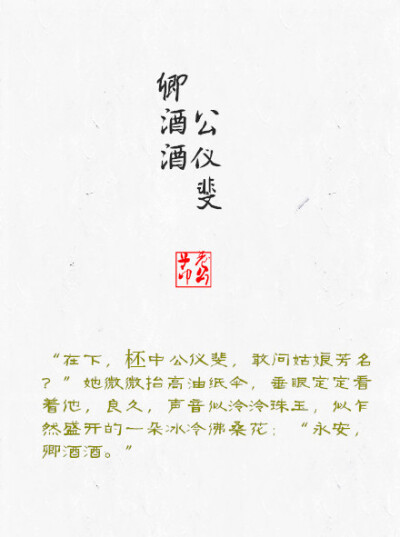 卿酒酒
公仪斐
“在下，柸中公仪斐，敢问姑娘芳名
？”她微微抬高油纸伞，垂眼定定看
着他，良久，声音似泠泠珠玉，似乍
然盛开的一朵冰冷佛桑花：“永安，
卿酒酒。”